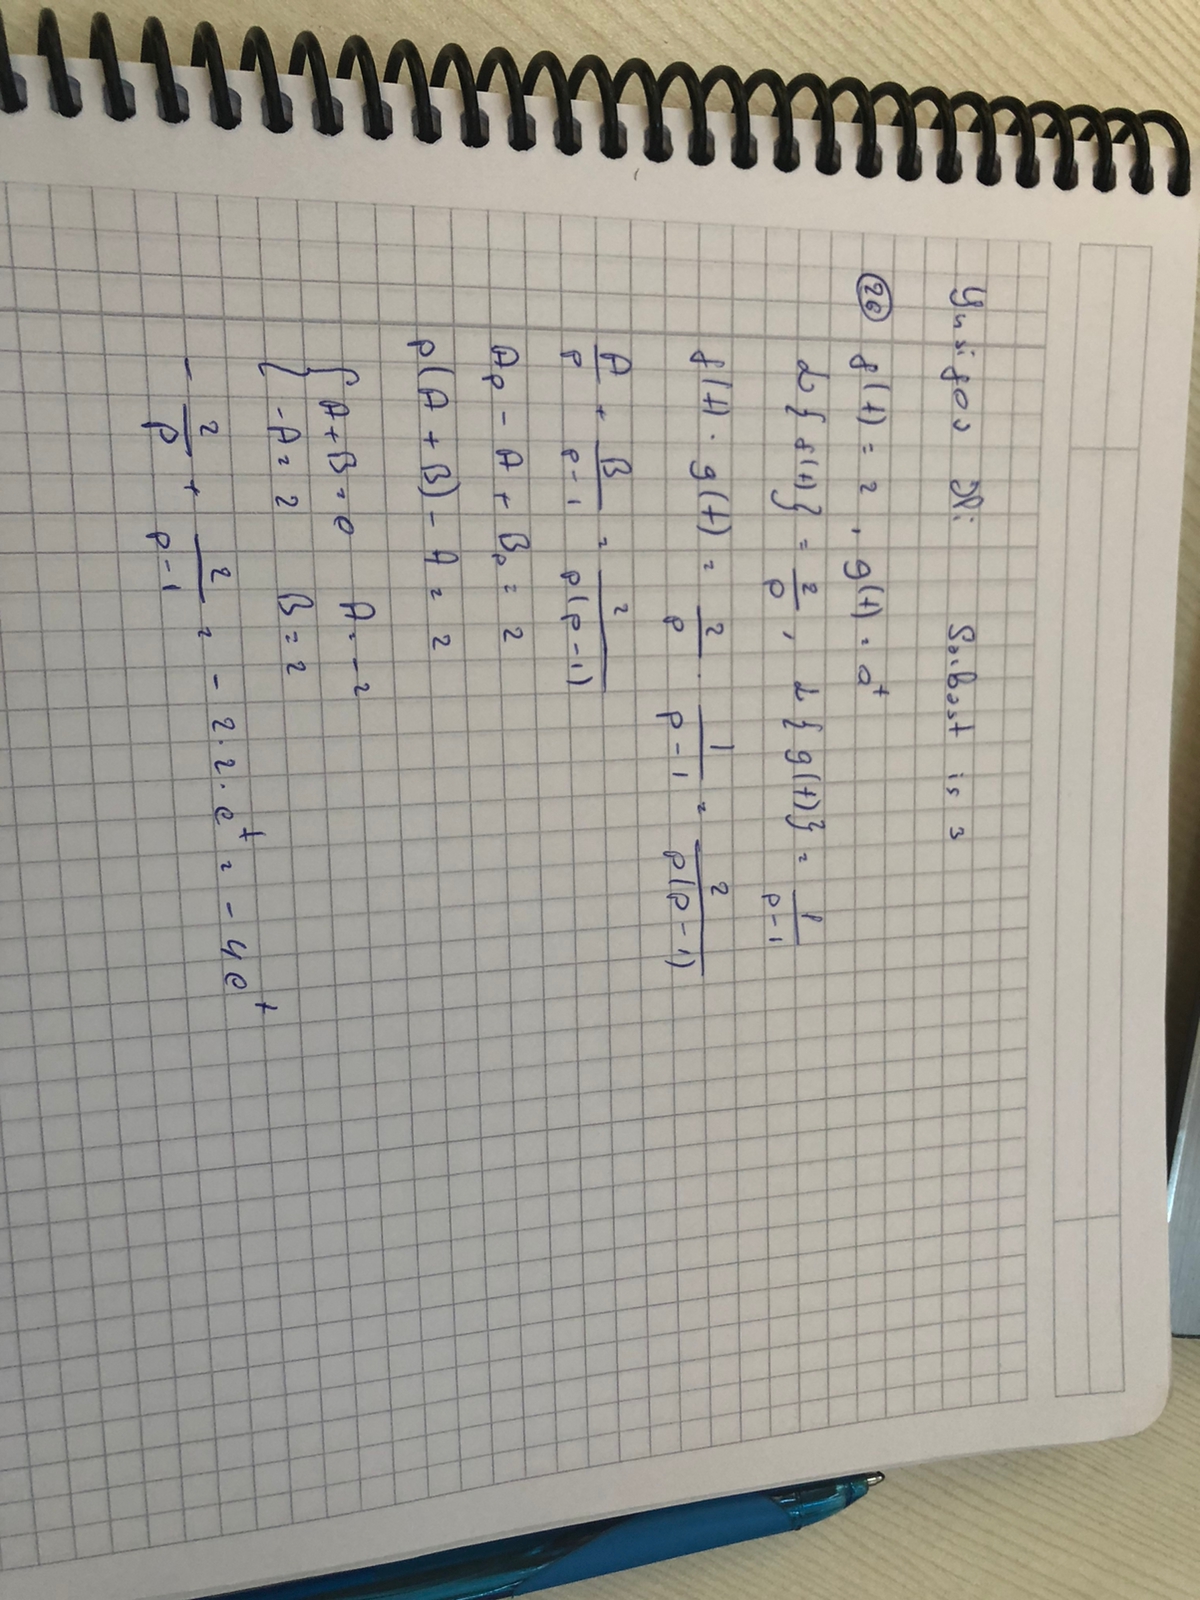 Yusifov Əli Sərbəst iş 3
(20) f(t) = 2 , g(t) = e^t
L{f(t)} = 2/p , L{g(t)} = 1/(p-1)
f(t) · g(t) = 2/p · 1/(p-1) = 2/(p(p-1))
A/p + B/(p-1) = 2/(p(p-1))
Ap - A + Bp = 2
p(A + B) - A = 2
{ A+B=0 A=-2
{ -A=2 B=2
- 2/p + 2/(p-1) = -2·2·e^t = -4e^t